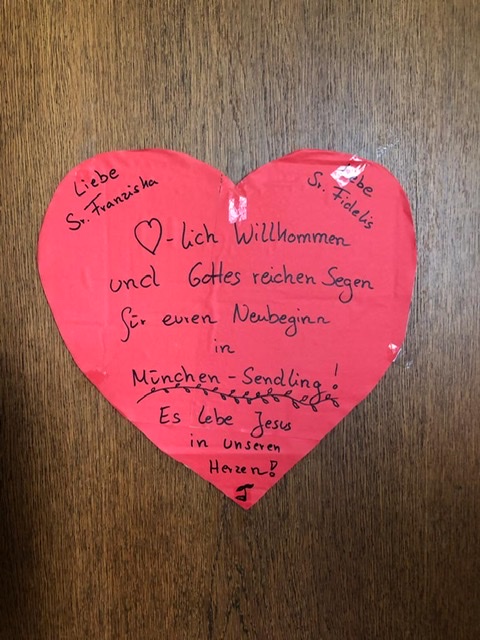 Liebe
Sr. Franziska
Liebe
Sr. Fidelis
♡-lich Willkommen
und Gottes reichen Segen
für euren Neubeginn
in
München-Sendling!
Es lebe Jesus
in unseren
Herzen!